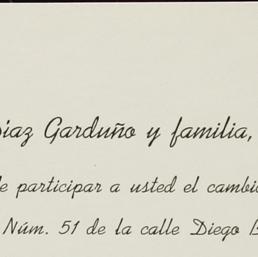 Díaz Garduño y familia,
de participar a usted el cambio
Núm. 51 de la calle Diego